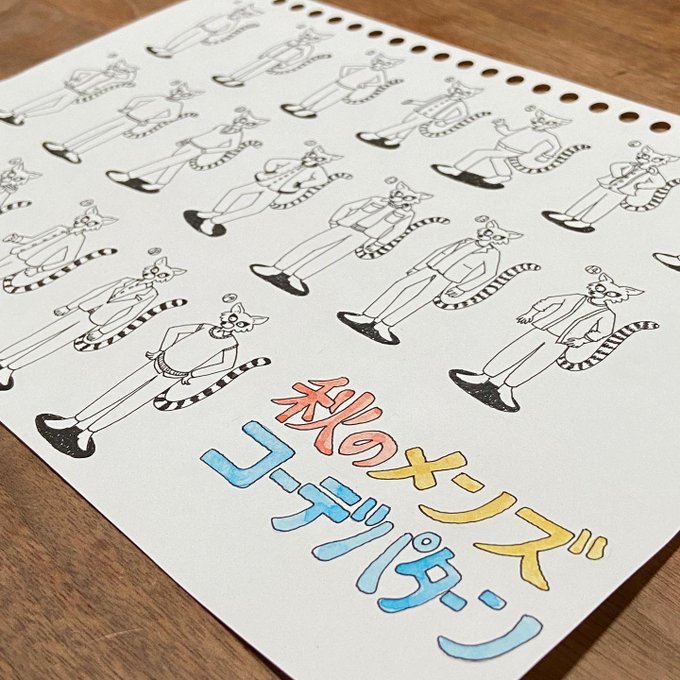 秋のメンズ
コーデパターン